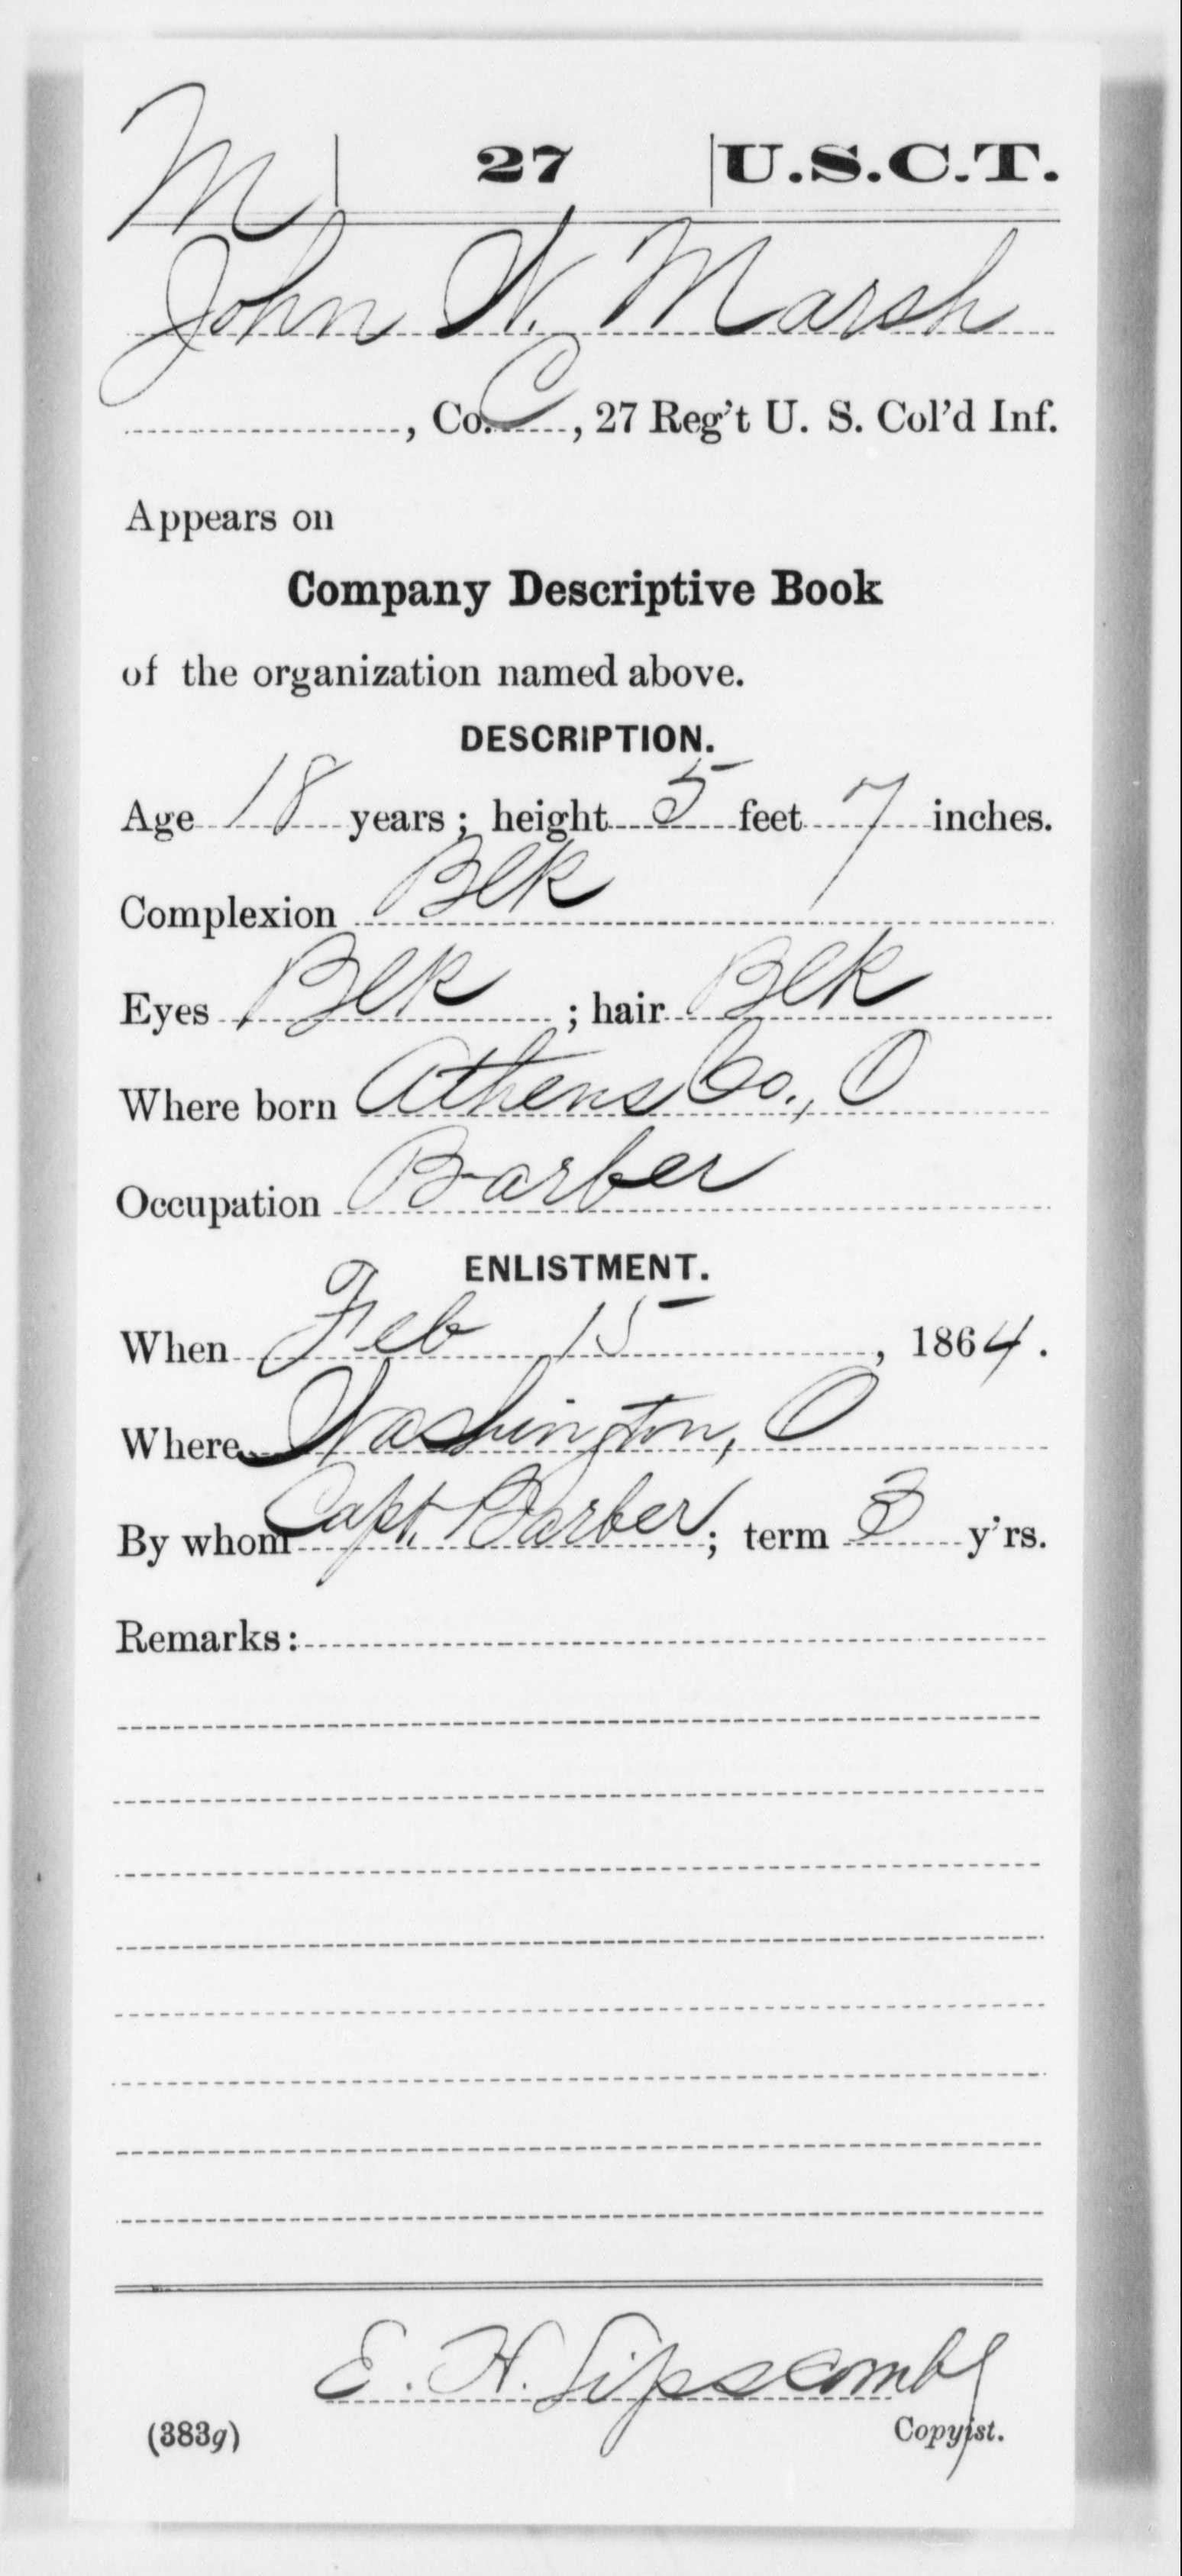 M 27 U.S.C.T.
John W. Marsh
, Co. C, 27 Reg't U. S. Col'd Inf.
Appears on
Company Descriptive Book
of the organization named above.
DESCRIPTION.
Age 18 years; height 5 feet 7 inches.
Complexion Blk
Eyes Blk; hair Blk
Where born Athens Co., O
Occupation Barber
ENLISTMENT.
When Feb 15, 1864.
Where Washington, O
By whom Capt. Barber; term 3 y'rs.
Remarks:
E. H. Lipscomb
(383g) Copyist.